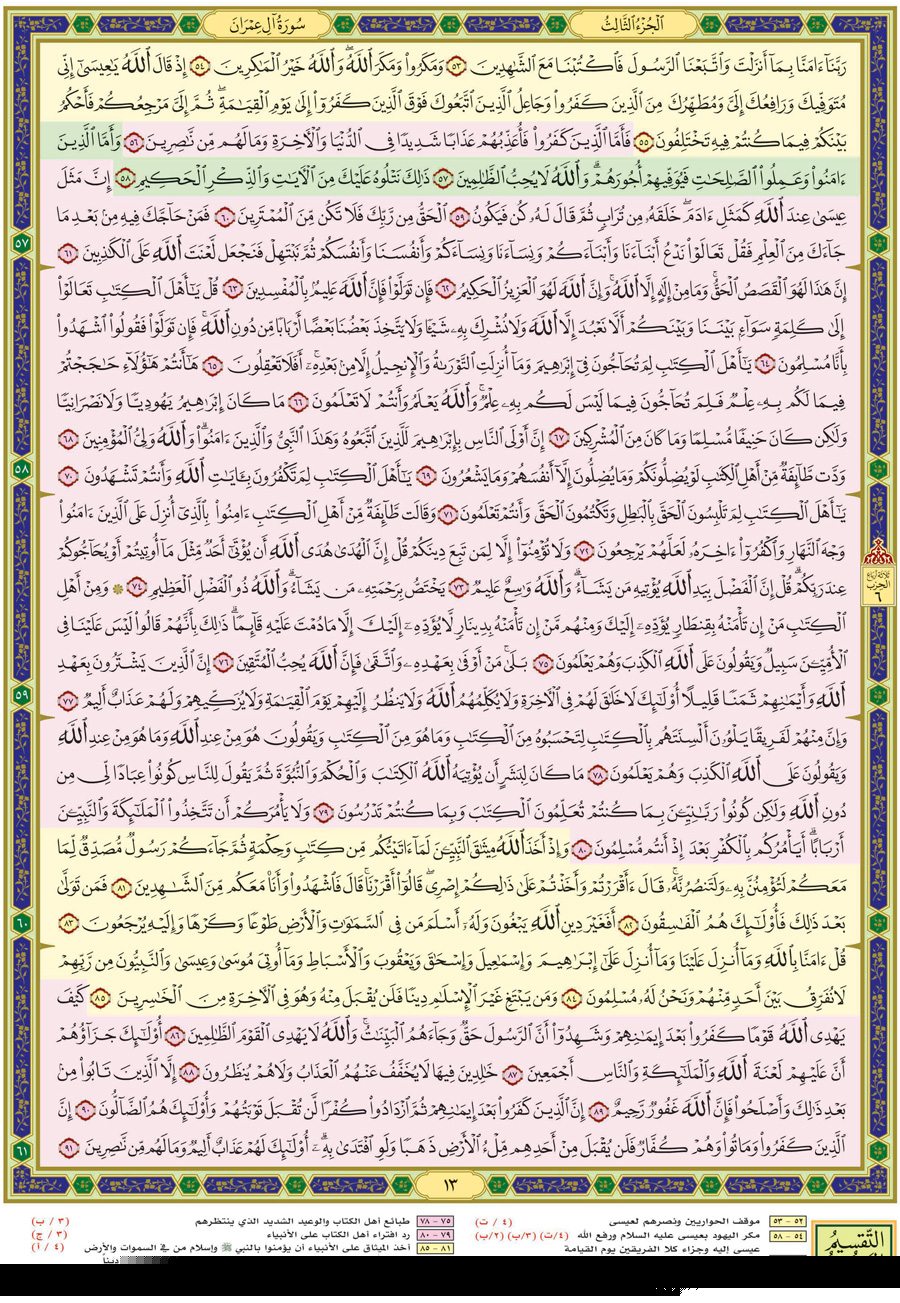 الجزء الثالث
سورة آل عمران
رَبَّنَا ءَامَنَّا بِمَا أَنزَلْتَ وَاتَّبَعْنَا الرَّسُولَ فَاكْتُبْنَا مَعَ الشَّٰهِدِينَ ٥٣ وَمَكَرُوا وَمَكَرَ اللَّهُ وَاللَّهُ خَيْرُ الْمَٰكِرِينَ ٥٤ إِذْ قَالَ اللَّهُ يَٰعِيسَىٰ إِنِّي
مُتَوَفِّيكَ وَرَافِعُكَ إِلَيَّ وَمُطَهِّرُكَ مِنَ الَّذِينَ كَفَرُوا وَجَاعِلُ الَّذِينَ اتَّبَعُوكَ فَوْقَ الَّذِينَ كَفَرُوا إِلَىٰ يَوْمِ الْقِيَٰمَةِ ثُمَّ إِلَيَّ مَرْجِعُكُمْ فَأَحْكُمُ
بَيْنَكُمْ فِيمَا كُنتُمْ فِيهِ تَخْتَلِفُونَ ٥٥ فَأَمَّا الَّذِينَ كَفَرُوا فَأُعَذِّبُهُمْ عَذَابًا شَدِيدًا فِي الدُّنْيَا وَالْءَاخِرَةِ وَمَا لَهُم مِّن نَّٰصِرِينَ ٥٦ وَأَمَّا الَّذِينَ
ءَامَنُوا وَعَمِلُوا الصَّٰلِحَٰتِ فَيُوَفِّيهِمْ أُجُورَهُمْ وَاللَّهُ لَا يُحِبُّ الظَّٰلِمِينَ ٥٧ ذَٰلِكَ نَتْلُوهُ عَلَيْكَ مِنَ الْءَايَٰتِ وَالذِّكْرِ الْحَكِيمِ ٥٨ إِنَّ مَثَلَ
عِيسَىٰ عِندَ اللَّهِ كَمَثَلِ ءَادَمَ خَلَقَهُ مِن تُرَابٍ ثُمَّ قَالَ لَهُ كُن فَيَكُونُ ٥٩ الْحَقُّ مِن رَّبِّكَ فَلَا تَكُن مِّنَ الْمُمْتَرِينَ ٦٠ فَمَنْ حَاجَّكَ فِيهِ مِن بَعْدِ مَا
جَاءَكَ مِنَ الْعِلْمِ فَقُلْ تَعَالَوْا نَدْعُ أَبْنَاءَنَا وَأَبْنَاءَكُمْ وَنِسَاءَنَا وَنِسَاءَكُمْ وَأَنفُسَنَا وَأَنفُسَكُمْ ثُمَّ نَبْتَهِلْ فَنَجْعَل لَّعْنَتَ اللَّهِ عَلَى الْكَٰذِبِينَ ٦١
إِنَّ هَٰذَا لَهُوَ الْقَصَصُ الْحَقُّ وَمَا مِنْ إِلَٰهٍ إِلَّا اللَّهُ وَإِنَّ اللَّهَ لَهُوَ الْعَزِيزُ الْحَكِيمُ ٦٢ فَإِن تَوَلَّوْا فَإِنَّ اللَّهَ عَلِيمٌ بِالْمُفْسِدِينَ ٦٣ قُلْ يَٰأَهْلَ الْكِتَٰبِ تَعَالَوْا
إِلَىٰ كَلِمَةٍ سَوَاءٍ بَيْنَنَا وَبَيْنَكُمْ أَلَّا نَعْبُدَ إِلَّا اللَّهَ وَلَا نُشْرِكَ بِهِ شَيْـًٔا وَلَا يَتَّخِذَ بَعْضُنَا بَعْضًا أَرْبَابًا مِّن دُونِ اللَّهِ فَإِن تَوَلَّوْا فَقُولُوا اشْهَدُوا
بِأَنَّا مُسْلِمُونَ ٦٤ يَٰأَهْلَ الْكِتَٰبِ لِمَ تُحَاجُّونَ فِي إِبْرَٰهِيمَ وَمَا أُنزِلَتِ التَّوْرَىٰةُ وَالْإِنجِيلُ إِلَّا مِن بَعْدِهِ أَفَلَا تَعْقِلُونَ ٦٥ هَٰأَنتُمْ هَٰؤُلَاءِ حَٰجَجْتُمْ
فِيمَا لَكُم بِهِ عِلْمٌ فَلِمَ تُحَاجُّونَ فِيمَا لَيْسَ لَكُم بِهِ عِلْمٌ وَاللَّهُ يَعْلَمُ وَأَنتُمْ لَا تَعْلَمُونَ ٦٦ مَا كَانَ إِبْرَٰهِيمُ يَهُودِيًّا وَلَا نَصْرَانِيًّا
وَلَٰكِن كَانَ حَنِيفًا مُّسْلِمًا وَمَا كَانَ مِنَ الْمُشْرِكِينَ ٦٧ إِنَّ أَوْلَى النَّاسِ بِإِبْرَٰهِيمَ لَلَّذِينَ اتَّبَعُوهُ وَهَٰذَا النَّبِيُّ وَالَّذِينَ ءَامَنُوا وَاللَّهُ وَلِيُّ الْمُؤْمِنِينَ ٦٨
وَدَّت طَّائِفَةٌ مِّنْ أَهْلِ الْكِتَٰبِ لَوْ يُضِلُّونَكُمْ وَمَا يُضِلُّونَ إِلَّا أَنفُسَهُمْ وَمَا يَشْعُرُونَ ٦٩ يَٰأَهْلَ الْكِتَٰبِ لِمَ تَكْفُرُونَ بِـَٔايَٰتِ اللَّهِ وَأَنتُمْ تَشْهَدُونَ ٧٠
يَٰأَهْلَ الْكِتَٰبِ لِمَ تَلْبِسُونَ الْحَقَّ بِالْبَٰطِلِ وَتَكْتُمُونَ الْحَقَّ وَأَنتُمْ تَعْلَمُونَ ٧١ وَقَالَت طَّائِفَةٌ مِّنْ أَهْلِ الْكِتَٰبِ ءَامِنُوا بِالَّذِي أُنزِلَ عَلَى الَّذِينَ ءَامَنُوا
وَجْهَ النَّهَارِ وَاكْفُرُوا ءَاخِرَهُ لَعَلَّهُمْ يَرْجِعُونَ ٧٢ وَلَا تُؤْمِنُوا إِلَّا لِمَن تَبِعَ دِينَكُمْ قُلْ إِنَّ الْهُدَىٰ هُدَى اللَّهِ أَن يُؤْتَىٰ أَحَدٌ مِّثْلَ مَا أُوتِيتُمْ أَوْ يُحَاجُّوكُمْ
عِندَ رَبِّكُمْ قُلْ إِنَّ الْفَضْلَ بِيَدِ اللَّهِ يُؤْتِيهِ مَن يَشَاءُ وَاللَّهُ وَٰسِعٌ عَلِيمٌ ٧٣ يَخْتَصُّ بِرَحْمَتِهِ مَن يَشَاءُ وَاللَّهُ ذُو الْفَضْلِ الْعَظِيمِ ٧٤ ۞ وَمِنْ أَهْلِ
الْكِتَٰبِ مَنْ إِن تَأْمَنْهُ بِقِنطَارٍ يُؤَدِّهِ إِلَيْكَ وَمِنْهُم مَّنْ إِن تَأْمَنْهُ بِدِينَارٍ لَّا يُؤَدِّهِ إِلَيْكَ إِلَّا مَا دُمْتَ عَلَيْهِ قَائِمًا ذَٰلِكَ بِأَنَّهُمْ قَالُوا لَيْسَ عَلَيْنَا فِي
الْأُمِّيِّـۧنَ سَبِيلٌ وَيَقُولُونَ عَلَى اللَّهِ الْكَذِبَ وَهُمْ يَعْلَمُونَ ٧٥ بَلَىٰ مَنْ أَوْفَىٰ بِعَهْدِهِ وَاتَّقَىٰ فَإِنَّ اللَّهَ يُحِبُّ الْمُتَّقِينَ ٧٦ إِنَّ الَّذِينَ يَشْتَرُونَ بِعَهْدِ
اللَّهِ وَأَيْمَٰنِهِمْ ثَمَنًا قَلِيلًا أُولَٰئِكَ لَا خَلَٰقَ لَهُمْ فِي الْءَاخِرَةِ وَلَا يُكَلِّمُهُمُ اللَّهُ وَلَا يَنظُرُ إِلَيْهِمْ يَوْمَ الْقِيَٰمَةِ وَلَا يُزَكِّيهِمْ وَلَهُمْ عَذَابٌ أَلِيمٌ ٧٧
وَإِنَّ مِنْهُمْ لَفَرِيقًا يَلْوُۥنَ أَلْسِنَتَهُم بِالْكِتَٰبِ لِتَحْسَبُوهُ مِنَ الْكِتَٰبِ وَمَا هُوَ مِنَ الْكِتَٰبِ وَيَقُولُونَ هُوَ مِنْ عِندِ اللَّهِ وَمَا هُوَ مِنْ عِندِ اللَّهِ
وَيَقُولُونَ عَلَى اللَّهِ الْكَذِبَ وَهُمْ يَعْلَمُونَ ٧٨ مَا كَانَ لِبَشَرٍ أَن يُؤْتِيَهُ اللَّهُ الْكِتَٰبَ وَالْحُكْمَ وَالنُّبُوَّةَ ثُمَّ يَقُولَ لِلنَّاسِ كُونُوا عِبَادًا لِّي مِن
دُونِ اللَّهِ وَلَٰكِن كُونُوا رَبَّٰنِيِّـۧنَ بِمَا كُنتُمْ تُعَلِّمُونَ الْكِتَٰبَ وَبِمَا كُنتُمْ تَدْرُسُونَ ٧٩ وَلَا يَأْمُرَكُمْ أَن تَتَّخِذُوا الْمَلَٰئِكَةَ وَالنَّبِيِّـۧنَ
أَرْبَابًا أَيَأْمُرُكُم بِالْكُفْرِ بَعْدَ إِذْ أَنتُم مُّسْلِمُونَ ٨٠ وَإِذْ أَخَذَ اللَّهُ مِيثَٰقَ النَّبِيِّـۧنَ لَمَا ءَاتَيْتُكُم مِّن كِتَٰبٍ وَحِكْمَةٍ ثُمَّ جَاءَكُمْ رَسُولٌ مُّصَدِّقٌ لِّمَا
مَعَكُمْ لَتُؤْمِنُنَّ بِهِ وَلَتَنصُرُنَّهُ قَالَ ءَأَقْرَرْتُمْ وَأَخَذْتُمْ عَلَىٰ ذَٰلِكُمْ إِصْرِي قَالُوا أَقْرَرْنَا قَالَ فَاشْهَدُوا وَأَنَا مَعَكُم مِّنَ الشَّٰهِدِينَ ٨١ فَمَن تَوَلَّىٰ
بَعْدَ ذَٰلِكَ فَأُولَٰئِكَ هُمُ الْفَٰسِقُونَ ٨٢ أَفَغَيْرَ دِينِ اللَّهِ يَبْغُونَ وَلَهُ أَسْلَمَ مَن فِي السَّمَٰوَٰتِ وَالْأَرْضِ طَوْعًا وَكَرْهًا وَإِلَيْهِ يُرْجَعُونَ ٨٣
قُلْ ءَامَنَّا بِاللَّهِ وَمَا أُنزِلَ عَلَيْنَا وَمَا أُنزِلَ عَلَىٰ إِبْرَٰهِيمَ وَإِسْمَٰعِيلَ وَإِسْحَٰقَ وَيَعْقُوبَ وَالْأَسْبَاطِ وَمَا أُوتِيَ مُوسَىٰ وَعِيسَىٰ وَالنَّبِيُّونَ مِن رَّبِّهِمْ
لَا نُفَرِّقُ بَيْنَ أَحَدٍ مِّنْهُمْ وَنَحْنُ لَهُ مُسْلِمُونَ ٨٤ وَمَن يَبْتَغِ غَيْرَ الْإِسْلَٰمِ دِينًا فَلَن يُقْبَلَ مِنْهُ وَهُوَ فِي الْءَاخِرَةِ مِنَ الْخَٰسِرِينَ ٨٥ كَيْفَ
يَهْدِي اللَّهُ قَوْمًا كَفَرُوا بَعْدَ إِيمَٰنِهِمْ وَشَهِدُوا أَنَّ الرَّسُولَ حَقٌّ وَجَاءَهُمُ الْبَيِّنَٰتُ وَاللَّهُ لَا يَهْدِي الْقَوْمَ الظَّٰلِمِينَ ٨٦ أُولَٰئِكَ جَزَاؤُهُمْ
أَنَّ عَلَيْهِمْ لَعْنَةَ اللَّهِ وَالْمَلَٰئِكَةِ وَالنَّاسِ أَجْمَعِينَ ٨٧ خَٰلِدِينَ فِيهَا لَا يُخَفَّفُ عَنْهُمُ الْعَذَابُ وَلَا هُمْ يُنظَرُونَ ٨٨ إِلَّا الَّذِينَ تَابُوا مِن
بَعْدِ ذَٰلِكَ وَأَصْلَحُوا فَإِنَّ اللَّهَ غَفُورٌ رَّحِيمٌ ٨٩ إِنَّ الَّذِينَ كَفَرُوا بَعْدَ إِيمَٰنِهِمْ ثُمَّ ازْدَادُوا كُفْرًا لَّن تُقْبَلَ تَوْبَتُهُمْ وَأُولَٰئِكَ هُمُ الضَّالُّونَ ٩٠ إِنَّ
الَّذِينَ كَفَرُوا وَمَاتُوا وَهُمْ كُفَّارٌ فَلَن يُقْبَلَ مِنْ أَحَدِهِم مِّلْءُ الْأَرْضِ ذَهَبًا وَلَوِ افْتَدَىٰ بِهِ أُولَٰئِكَ لَهُمْ عَذَابٌ أَلِيمٌ وَمَا لَهُم مِّن نَّٰصِرِينَ ٩١
٥٧
٥٨
٥٩
٦٠
٦١
ثلاثة أرباع
الحزب
٦
١٣
التقسيم
٥٢ - ٥٣ موقف الحواريين ونصرهم لعيسى (٤ / ت)
٥٤ - ٥٨ مكر اليهود بعيسى عليه السلام ورفع الله (٤/ت) (٣/ب) (٢/ب)
عيسى إليه وجزاء كلا الفريقين يوم القيامة
٧٥ - ٧٨ طبائع أهل الكتاب والوعيد الشديد الذي ينتظرهم (٣ / ب)
٧٩ - ٨٠ رد افتراء أهل الكتاب على الأنبياء (٣ / ج)
٨١ - ٨٥ أخذ الميثاق على الأنبياء أن يؤمنوا بالنبي ﷺ وإسلام من في السموات والأرض (٤ / أ)